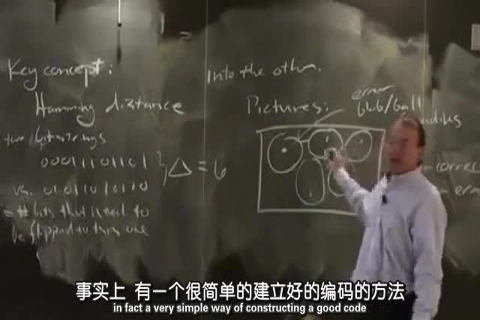 Key concept:
Hamming distance
two bitstrings
00011101101 } Δ = 6
vs. 01011010110
= # bits that need to
be flipped to turn one
into the other.
Pictures:
error
blob/ball
radius
事实上 有一个很简单的建立好的编码的方法
in fact a very simple way of constructing a good code